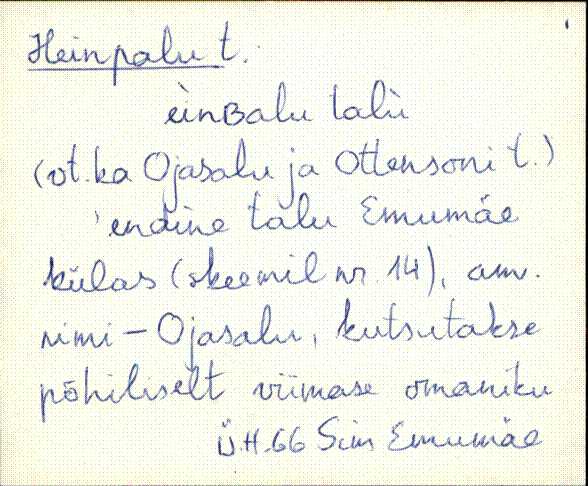 Heinpalu t.
èinBalu talù
(vt. ka Ojasalu ja Ottensoni t.)
endine talu Emumäe
külas (skeemil nr. 14), am.
nimi – Ojasalu, kutsutakse
põhiliselt viimase omaniku
Ü.H. 66 Sim Emumäe